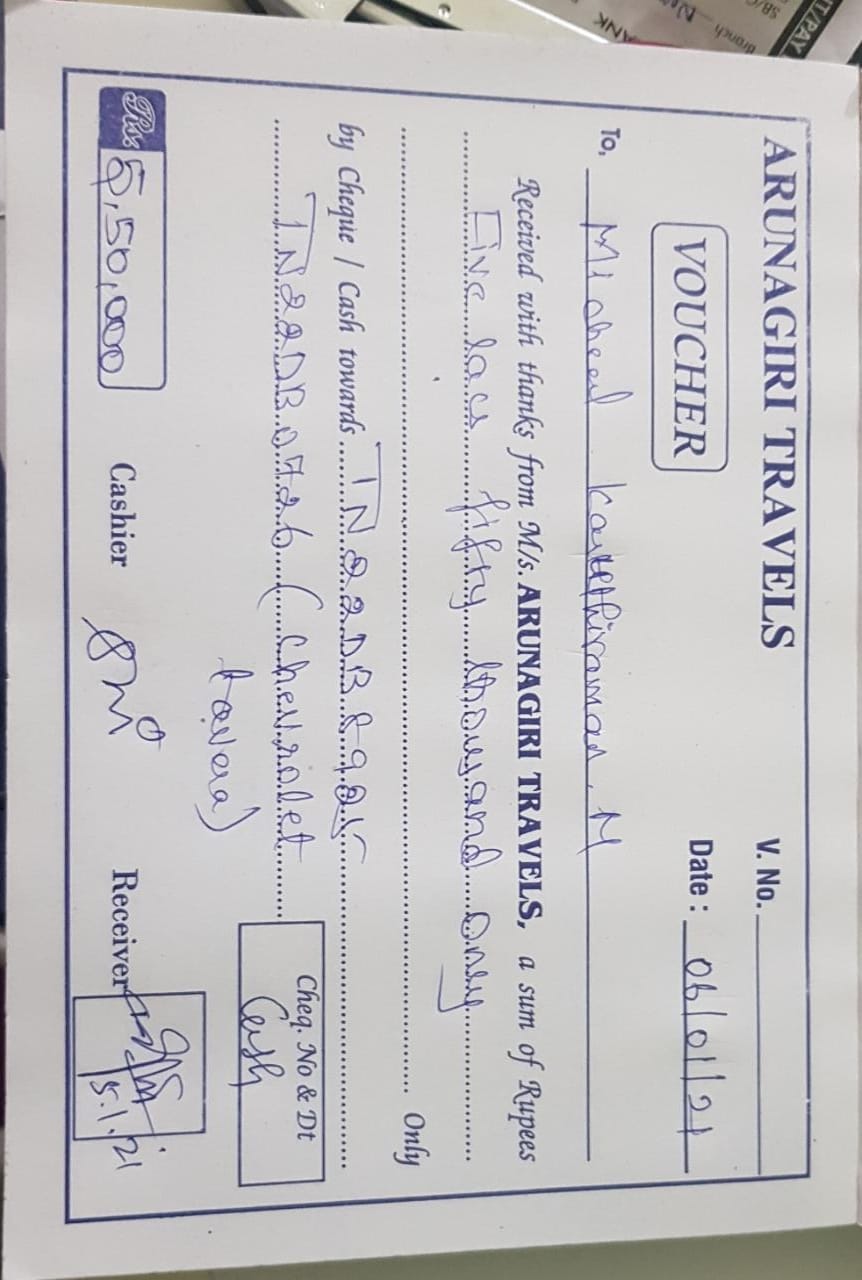 ARUNAGIRI TRAVELS
V. No.
VOUCHER
Date : 06/01/21
To, Micheal M
Received with thanks from M/s. ARUNAGIRI TRAVELS, a sum of Rupees
Five lacs fifty thousand only
Only
by Cheque / Cash towards TN22DB8925
TN22DB0726 (Chevrolet
tavera)
Cheq. No & Dt
Cash
Rs. 5,50,000
Cashier
Receiver
5.1.21
T/PAY
SB/C
Branch
ANK